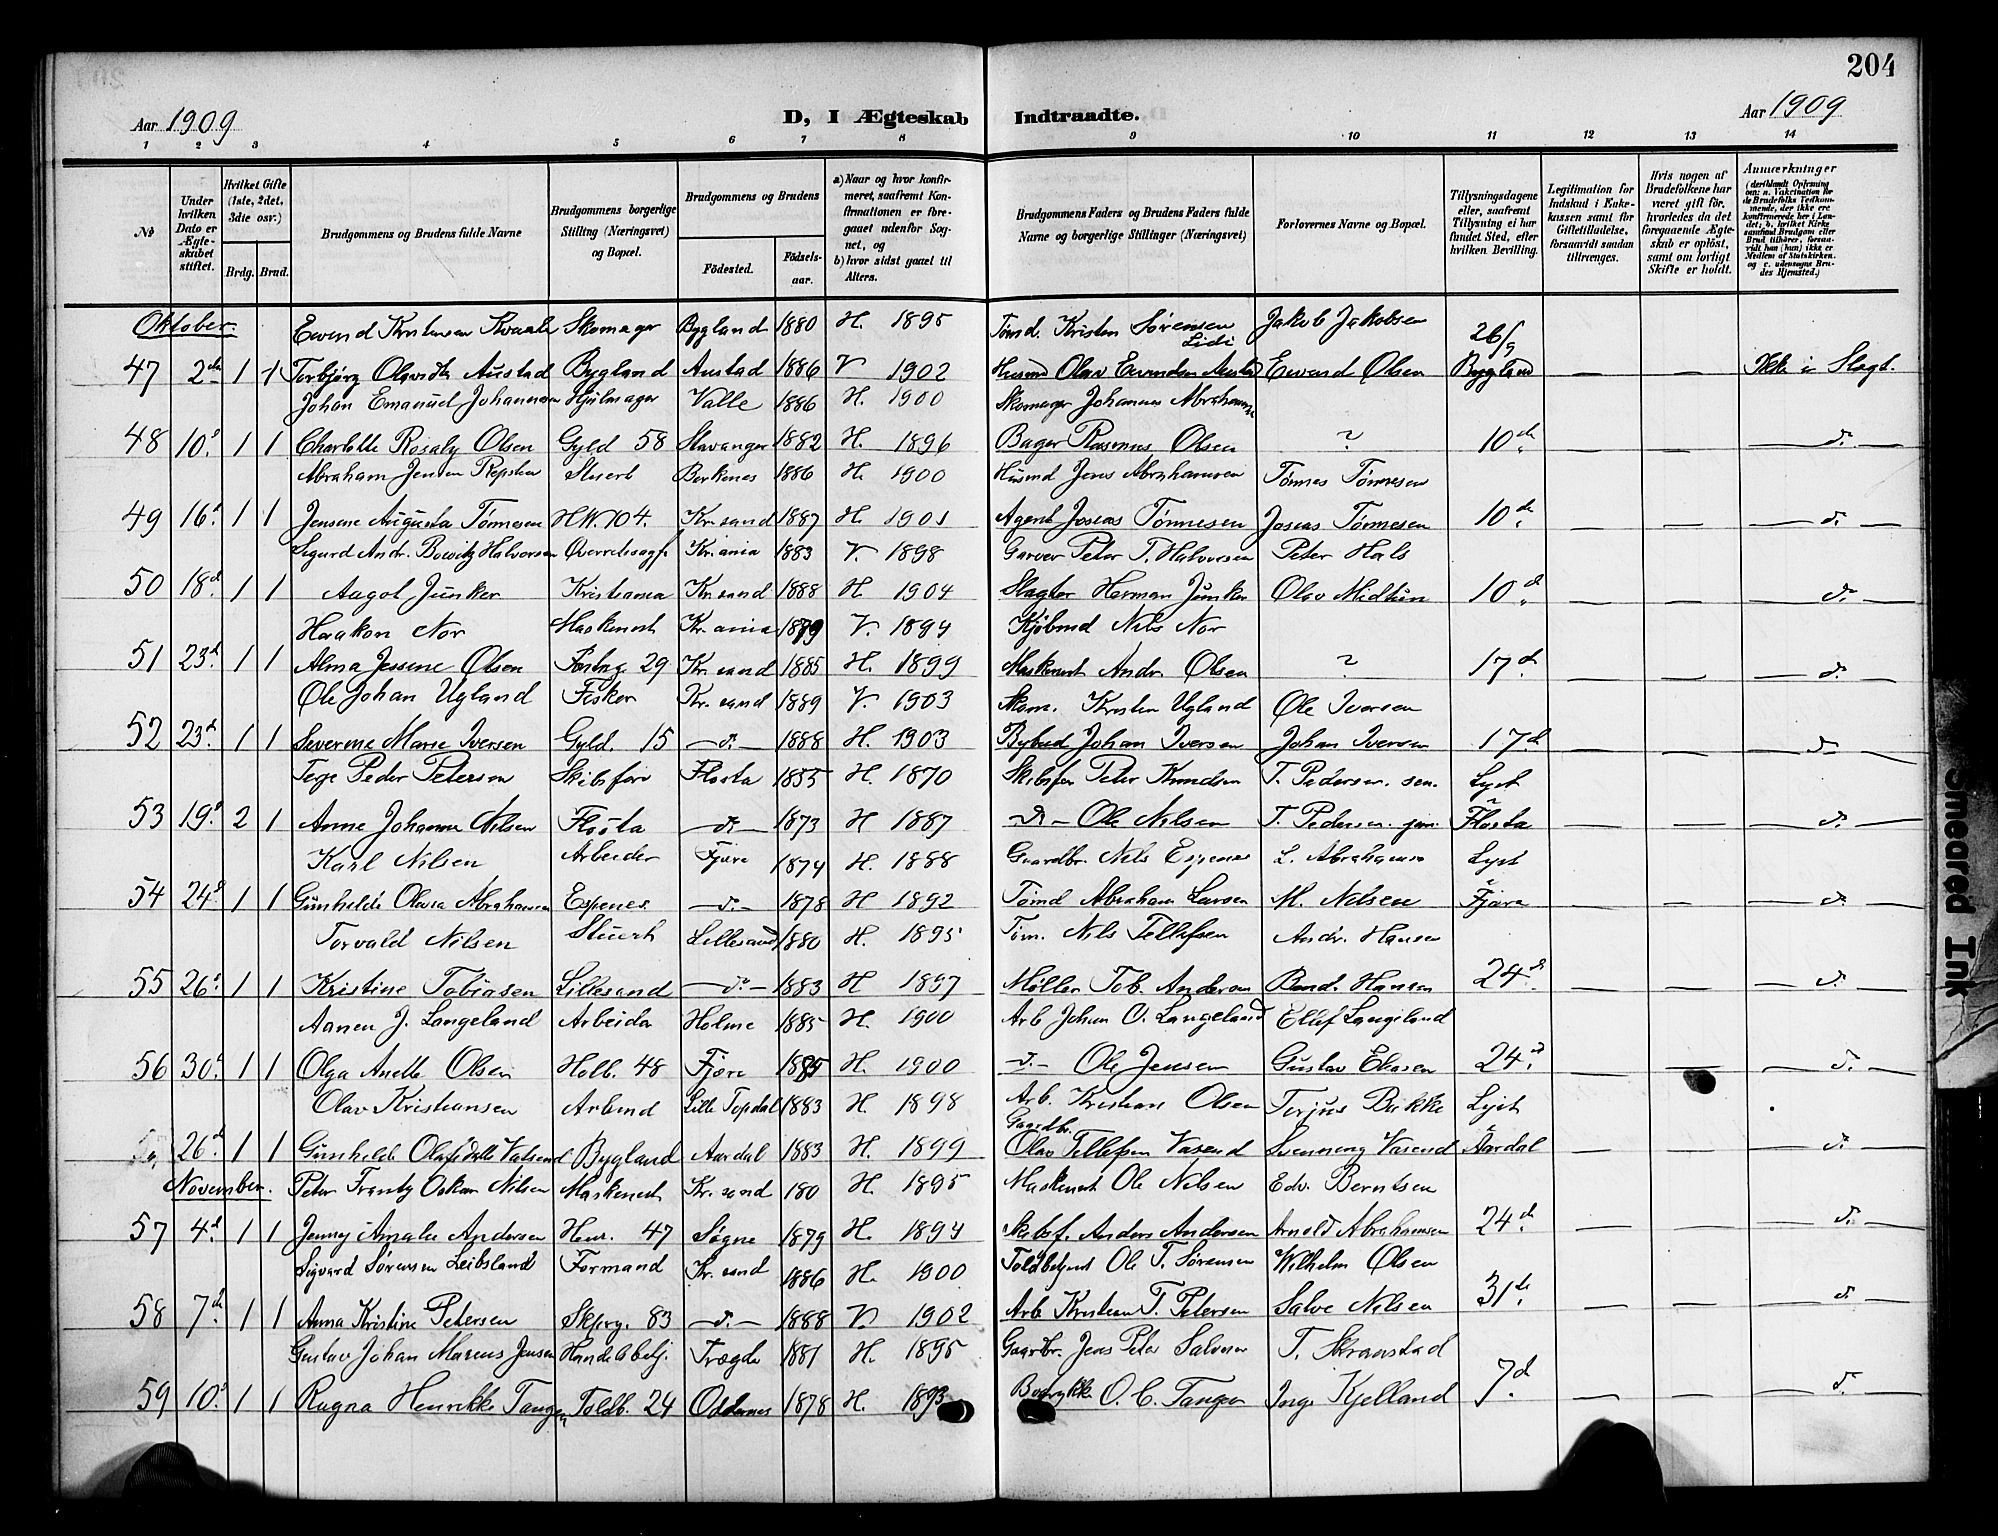 204
Aar 1909 D, I Ægteskab Indtraadte. Aar 1909
1 2 3 4 5 6 7 8 9 10 11 12 13 14
No
Under hvilken Dato er Ægteskabet stiftet.
Hvilket Gifte (1ste, 2det, 3die osv.)
Brdg. Brud.
Brudgommens og Brudens fulde Navne
Brudgommens borgerlige Stilling (Næringsvei) og Bopæl.
Brudgommens og Brudens
Fødested. Fødselsaar.
a) Naar og hvor konfirmeret, saafremt Konfirmationen er foregaaet udenfor Sognet, og
b) hvor sidst gaaet til Alters.
Brudgommens Faders og Brudens Faders fulde Navne og borgerlige Stillinger (Næringsvei)
Forlovernes Navne og Bopæl.
Tillysningsdagene eller, saafremt Tillysning ei har fundet Sted, efter hvilken Bevilling.
Legitimation for Indskud i Enkekassen samt for Giftetilladelse, forsaavidt saadan tiltrænges.
Hvis nogen af Brudefolkene har været gift før, hvorledes da det foregaaende Ægteskab er opløst, samt om lovligt Skifte er holdt.
Anmærkninger
Oktober. Eivend Kristensen Kvaale Skomager Bygland 1880 H. 1895 Tømd. Kristen Sørensen Lidi Jakob Jakobsen 26/9
47 2den 1 1 Torbjørg Olavsdtr Austad Bygland Austad 1886 V 1902 Husmd Olav Eivendsen Austad Eivend Olsen Bygland — — Ikke i Slægt.
Johan Emanuel Johannesen Hjulmager Valle 1886 H. 1900 Skomager Johannes Abrahamsen
48 10d 1 1 Charlotte Rosaly Olsen Gyld 58 Stavanger 1882 H. 1896 Bager Rasmus Olsen ? 10de — — — d. —
Abraham Jensen Repsten Stuert Birkenes 1886 H. 1900 Husmd Jens Abrahamsen Tønnes Tønnesen
49 16d 1 1 Jensene Augusta Tønnesen H.W. 104. Kr.sand 1887 H. 1901 Agent Joseas Tønnesen Joseas Tønnesen 10de — — — d. —
Sigurd Andr. Bowitz Halvorsen Overretssagf. Kr.ania 1883 V. 1898 Garver Peter T. Halvorsen Peter Hals
50 18d 1 1 Aagot Junker Kristiania Kr.sand 1888 H 1904 Slagter Herman Junker Olav Midttun 10d — — — d. —
Haakon Nor Maskenist Kr.ania 1879 V. 1894 Kjøbmd Nils Nor
51 23d 1 1 Alma Jessine Olsen Festng 29 Kr.sand 1885 H. 1899 Maskenist Andr. Olsen ? 17de — — — d. —
Ole Johan Ugland Fisker Kr.sand 1889 V. 1903 Skom. Kristen Ugland Ole Iversen
52 23d 1 1 Severine Marie Iversen Gyld. 15 — d. — 1888 H. 1903 Bybud Johan Iversen Johan Iversen 17de — — — d. —
Terje Peder Petersen Skibsfører Flosta 1855 H. 1870 Skibsfør Peter Knudsen T. Pedersen. sen. Lyst
53 19d 2 1 Anne Johanne Nilsen Flosta — d. — 1873 H 1887 — d. — Ole Nilsen T. Pedersen. jun. i Flosta — — — d. —
Karl Nilsen Arbeider Fjære 1874 H. 1888 Gaardbr. Nils Espenes L. Abrahamsen Lyst
54 24d 1 1 Gunhilde Olava Abrahamsen Espenes — d. — 1878 H 1892 Tømd Abraham Larsen M. Nilsen i Fjære — — — d. —
Torvald Nilsen Stuert Lillesand 1880 H. 1895 Tøm. Nils Tellefsen Andr. Hansen
55 26d 1 1 Kristine Tobiasen Lillesand — d. — 1883 H 1897 Møller Tob. Andersen Bend. Hansen 24d — — — d. —
Aanen J. Langeland Arbeider Holme 1885 H. 1900 Arb Johan O. Langeland Elluf Langeland
56 30d 1 1 Olga Anette Olsen Holb. 48 Fjære 1885 H. 1900 — d. — Ole Jensen Gustav Eliasen 24d — — — d. —
Olav Kristiansen Arbmd Lille Topdal 1883 H. 1898 Arb. Kristian Olsen Terjus Bakke Lyst
26d 1 1 Gunhilde Olafsdatter Vasend Bygland Aardal 1883 H. 1899 Gaardbr. Olav Tellefsen Vasend Svennung Vasend i Aardal — — — d. —
November. Peter Frantz Oskar Nilsen Maskenist Kr.sand 180 H. 1895 Maskenist Ole Nilsen Edv. Berntsen
57 4d 1 1 Jenny Amalie Andersen Henr. 47 Søgne 1879 H. 1894 Skibsf. Anders Andersen Arnold Abrahamsen 24d — — — d. —
Sigvard Sørensen Leibsland Formand Kr.sand 1886 H. 1900 Toldbetjent Ole T. Sørensen Wilhelm Olsen
58 7de 1 1 Anna Kristine Petersen Skiprg. 83 — d. — 1888 V 1902 Arb. Kristian T. Petersen Salve Nilsen 31te — — — d. —
Gustav Johan Marcus Jensen Handelsbetj. Trægde 1881 H. 1895 Gaardbr. Jens Peter Salvesen T. Skraastad
59 10d 1 1 Ragna Henrikke Tangen Toldb. 24 Oddernes 1878 H. 1893 O. C. Tangen Inge Kjelland 7d — — — d. —
Smeared Ink